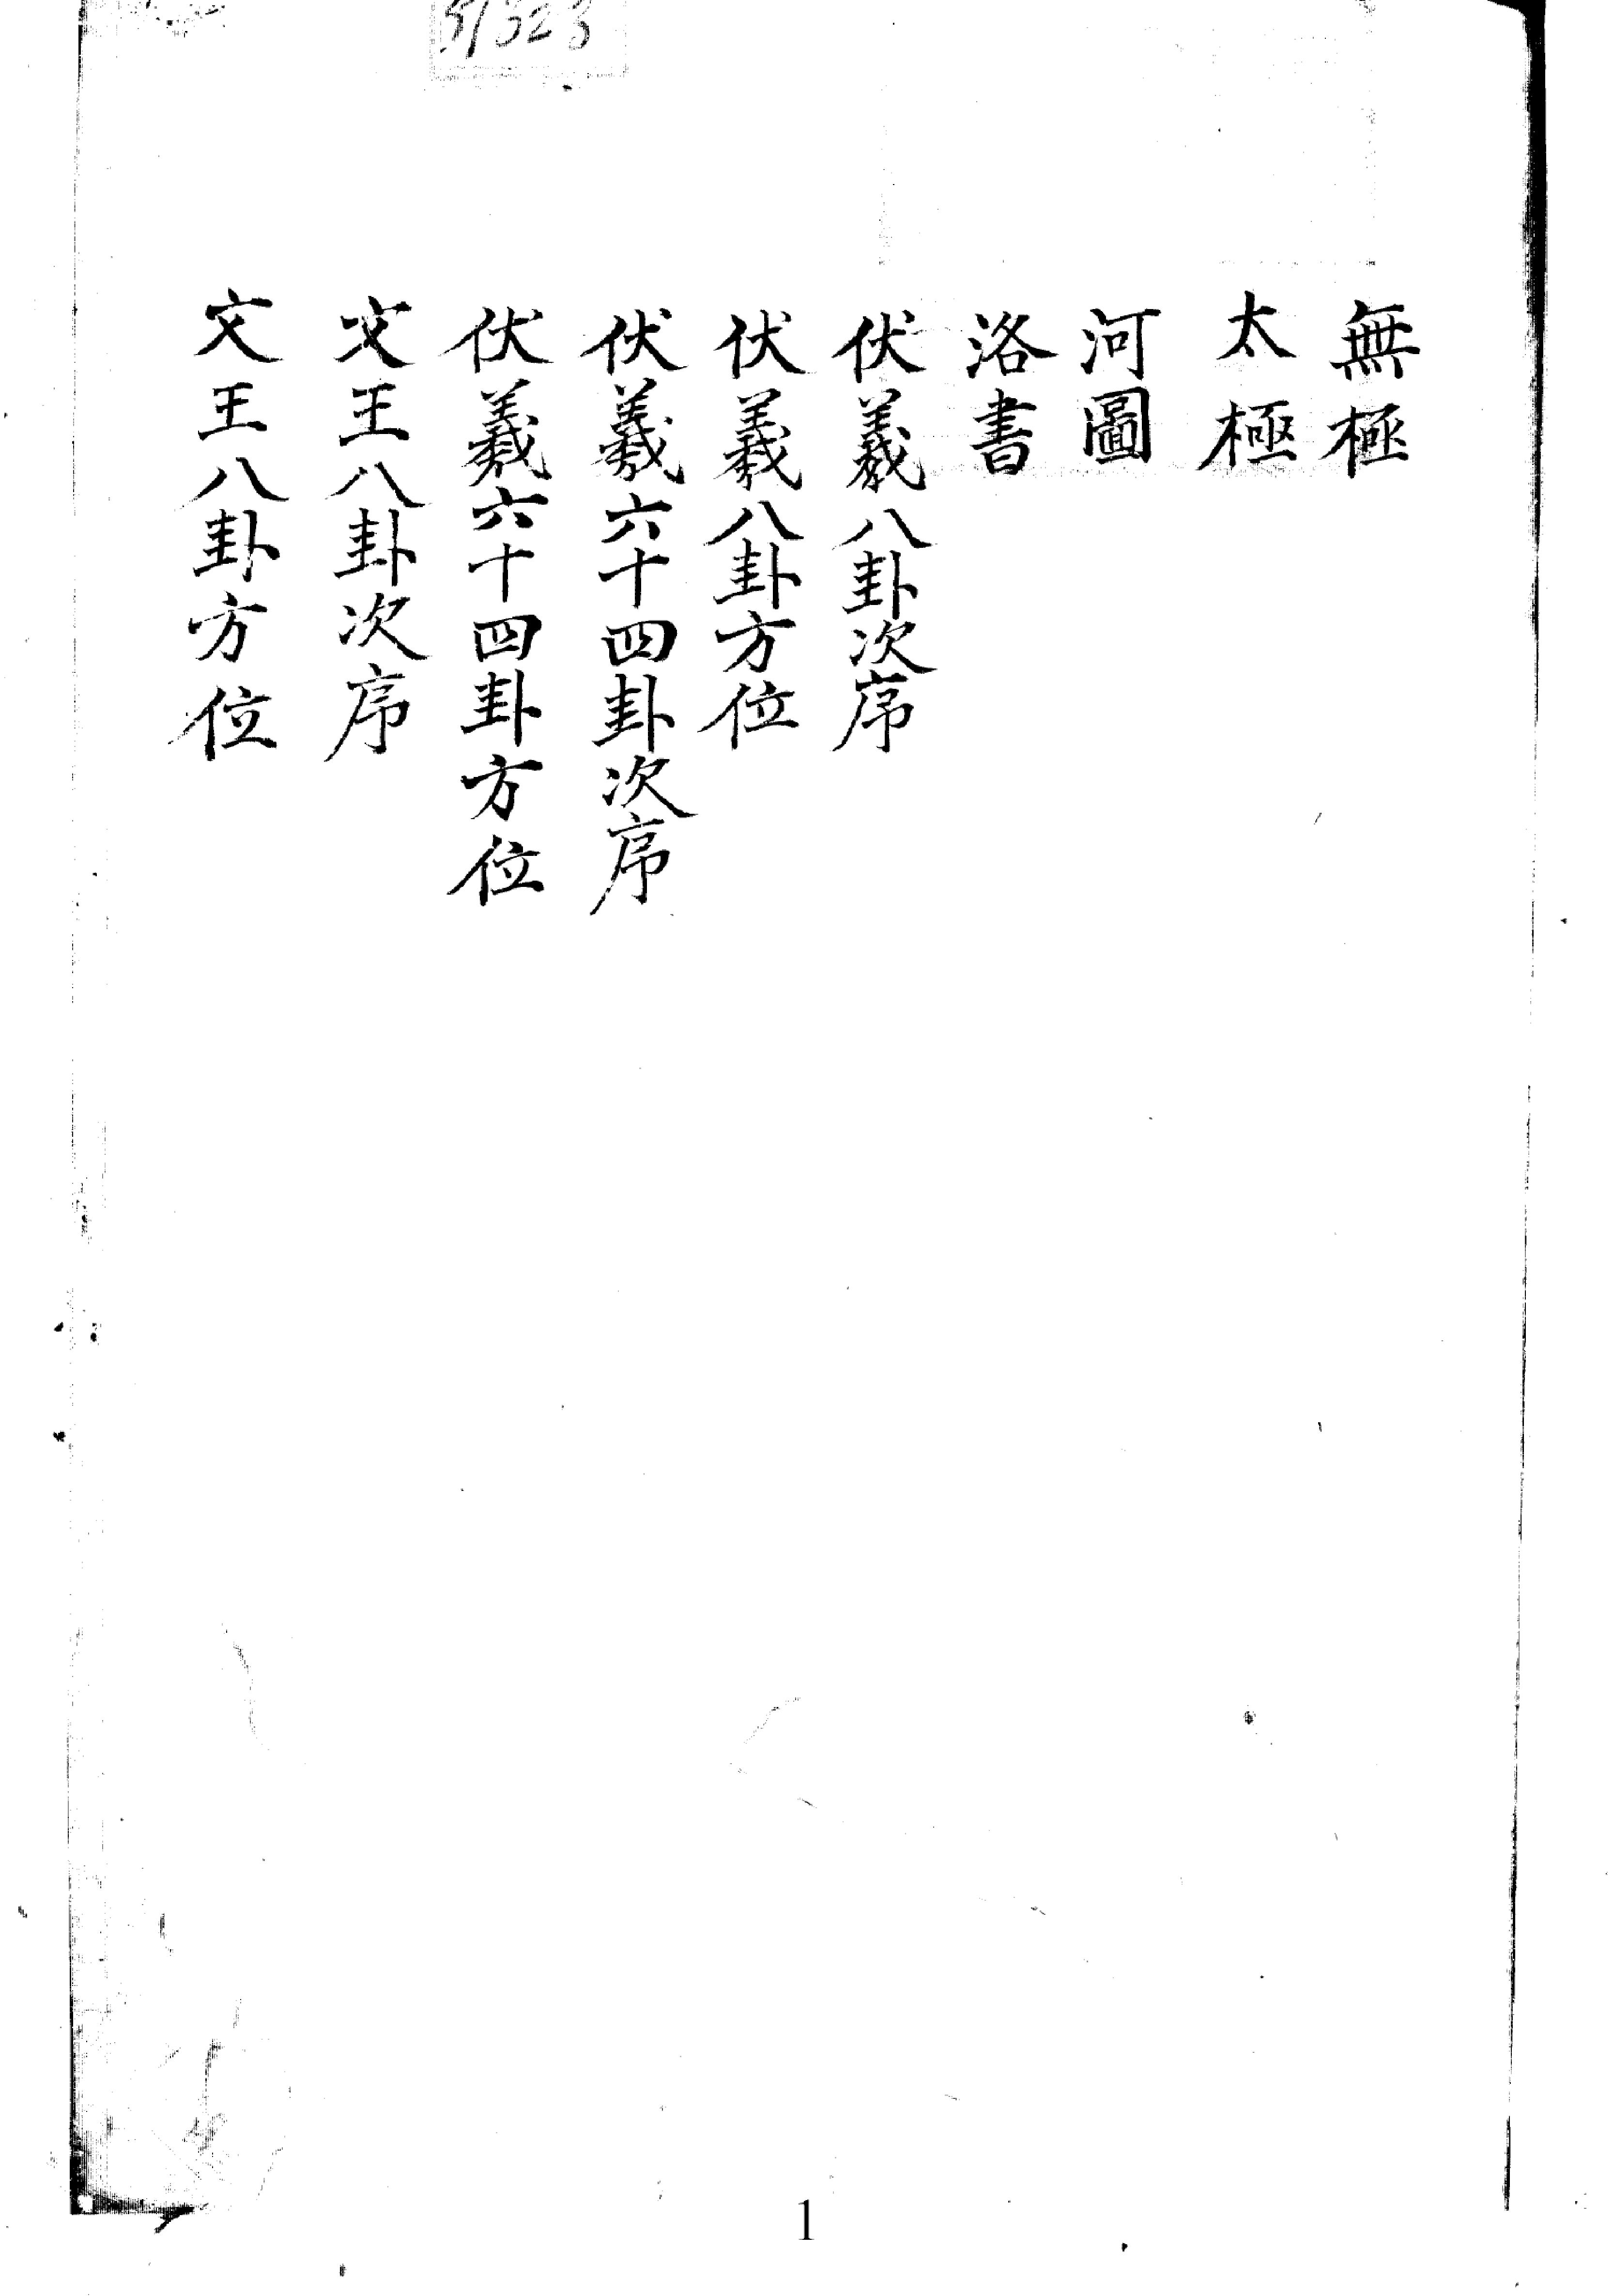 51323
無極
太極
河圖
洛書
伏羲八卦次序
伏羲八卦方位
伏羲六十四卦次序
伏羲六十四卦方位
文王八卦次序
文王八卦方位
1